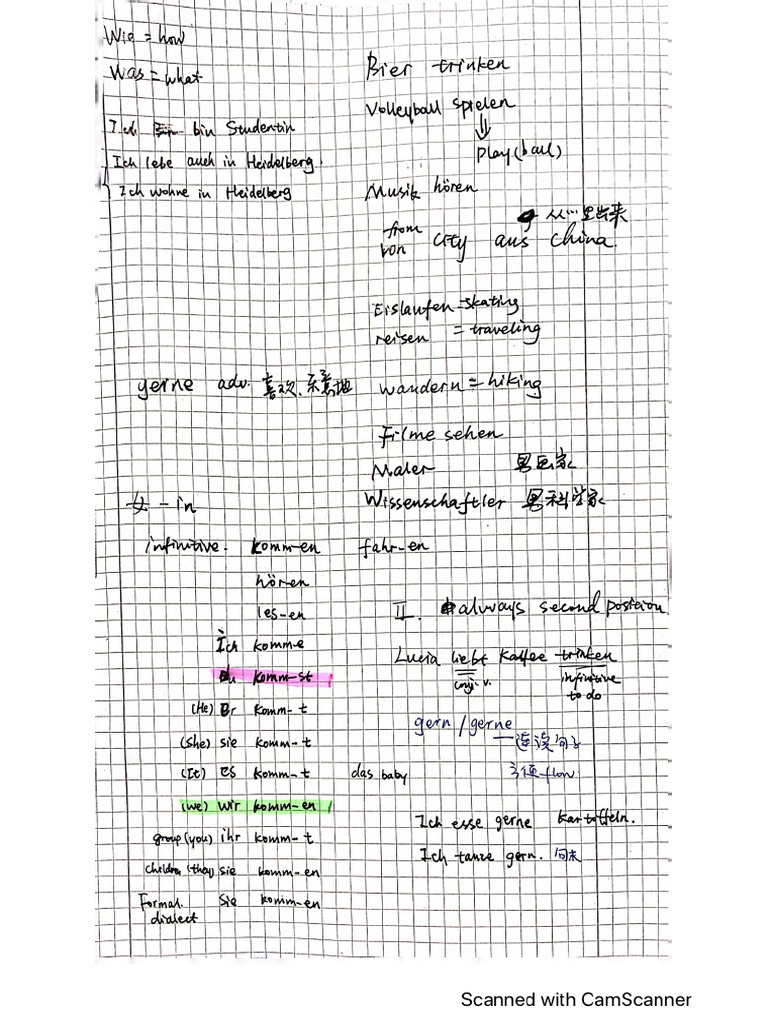 Wie = how
Was = what
Ich bin Studentin
Ich lebe auch in Heidelberg.
Ich wohne in Heidelberg
gerne adv. 喜欢、乐意地
女 -in
infinitive. komm-en fahr-en
hören
les-en
Ich komm-e
du komm-st
(He) Er komm-t
(She) sie komm-t
(It) es komm-t das baby
(we) wir komm-en
group (you) ihr komm-t
children (they) sie komm-en
Formal. Sie komm-en
dialect
Bier trinken
Volleyball spielen
⇓
play (ball)
Musik hören
从...里出来
from
von city aus China.
Eislaufen = skating
reisen = traveling
wandern = hiking
Filme sehen
Maler 男画家
Wissenschaftler 男科学家
II. always second position
Lucia liebt Kaffee trinken
conj. v. infinitive
to do
gern / gerne
flow
Ich esse gerne Kartoffeln.
Ich tanze gern. 句末
Scanned with CamScanner